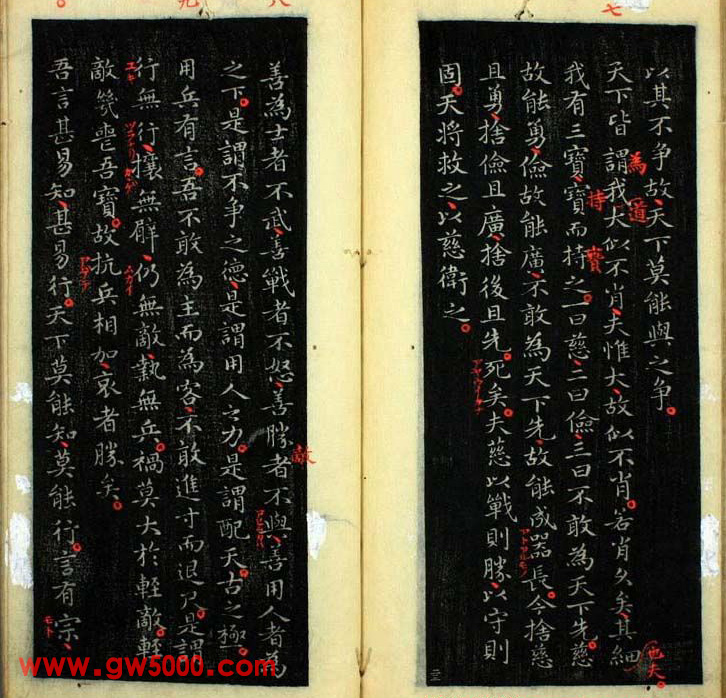 七
以其不争故天下莫能與之争
天下皆謂我大似不肖夫惟大故似不肖若肖久矣其細
為
道
也夫
我有三寶寶而持之一曰慈二曰儉三曰不敢為天下先慈
持
寶
故能勇儉故能廣不敢為天下先故能成器長今捨慈
且勇捨儉且廣捨後且先死矣夫慈以戰則勝以守則
固天将救之以慈衛之
八
善為士者不武善戰者不怒善勝者不與善用人者為
敵
之下是謂不争之德是謂用人之力是謂配天古之極
九
用兵有言吾不敢為主而為客不敢進寸而退尺是謂
行無行攘無臂仍無敵執無兵禍莫大於輕敵輕
ユキ
敵幾喪吾寶故抗兵相加哀者勝矣
吾言甚易知甚易行天下莫能知莫能行言有宗
モト
www.gw5000.com